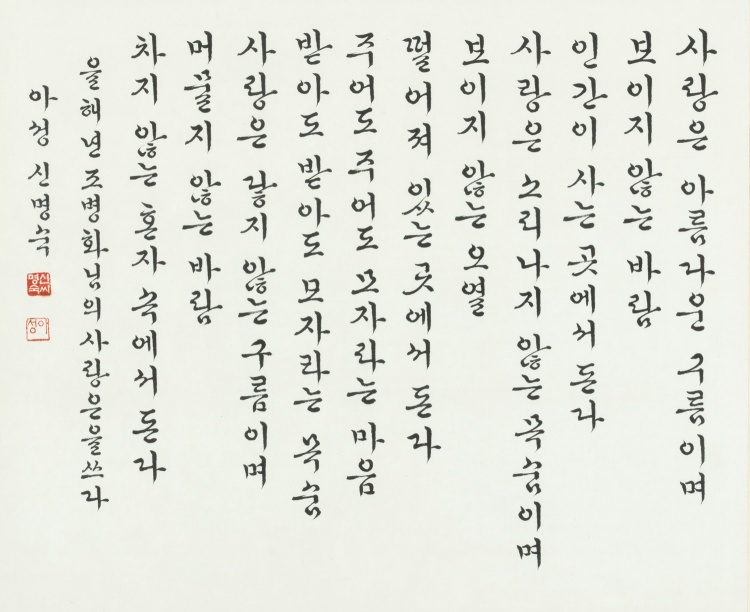 사랑은 아름다운 구름이며
보이지 않는 바람
인간이 사는 곳에서 돈다
사랑은 소리나지 않는 목숨이며
보이지 않는 오열
떨어져 있는 곳에서 돈다
주어도 주어도 모자라는 마음
받아도 받아도 모자라는 목숨
사랑은 닿지 않는 구름이며
머물지 않는 바람
차지 않는 혼자 속에서 돈다
을해년 조병화님의 사랑은을 쓰다
아정 신명숙
신씨명숙
아정